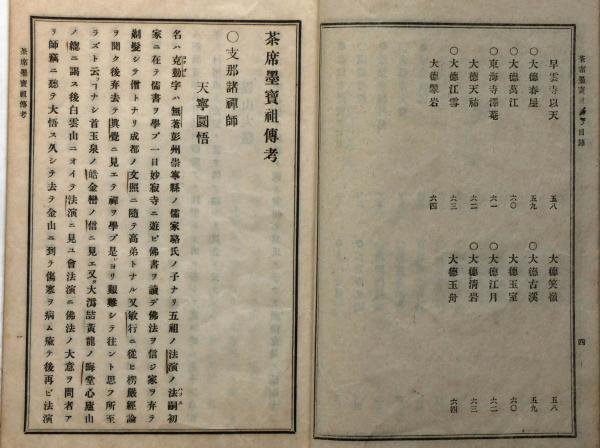 茶席墨寶祖傳考目錄
早雲寺以天 五八
〇大德春屋 五九
〇大德萬江 六〇
〇東海寺澤菴 六一
大德天祐 六二
〇大德江雪 六三
大德翠岩 六四
大德笑嶺 五八
〇大德古溪 五九
大德玉室 六〇
〇大德江月 六二
〇大德淸岩 六三
大德玉舟 六四
四
茶席墨寶祖傳考
〇支那諸禪師
天寧圜悟
名ハ克勤字ハ無著彭州崇寧縣ノ儒家駱氏ノ子ナリ五祖ノ法演ノ法嗣初
家ニ在テ儒書ヲ學ブ一日妙寂寺ニ遊ビ佛書ヲ讀デ佛法ヲ信ジ家ヲ弃テ
剃髮シテ僧トナリ成都ノ文照ニ隨テ高弟トナル又敏行ニ從ヒ楞嚴經論
ヲ聞ク後弃去テ眞覺ニ見エテ禪ヲ學ブ是ヨリ艱難シテ往ント思フ所至
ラズト云フコナシ首玉泉ノ皓金巒ノ信ニ見エ又大潙喆黃龍ノ晦堂心廬山
ノ總ニ謁ス後白雲山ニオイテ法演ニ見ユ會法演ニ佛法ノ大意ヲ問者ア
リ師竊ニ聽テ大悟ス久シテ去テ金山ニ到テ傷寒ヲ病ム瘉テ後再ビ法演
茶席墨寶祖傳考